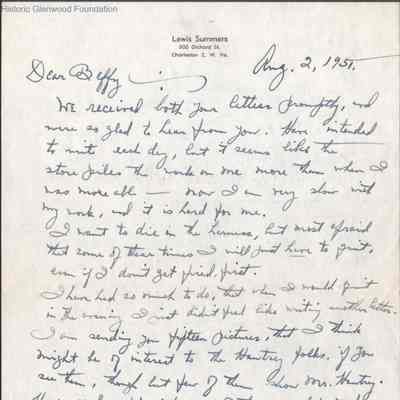 Historic Glenwood Foundation
Lewis Summers
800 Orchard St.
Charleston 2, W. Va.
Aug. 2, 1951.
Dear Beffy :
We received both your letters promptly, and
were so glad to hear from you. Have intended
to write each day, but it seems like the
store piles the work on me more than when I
was more able — now I am very slow with
my work, and it is hard for me.
I want to die in the harness, but most afraid
that some of these times I will just have to quit,
even if I don't get fired first.
I have had so much to do, that when I would quit
in the evening I just didn't feel like writing another letter.
I am sending you fifteen pictures, that I think
might be of interest to the folks, if you
see them, though but few of them show Mrs.